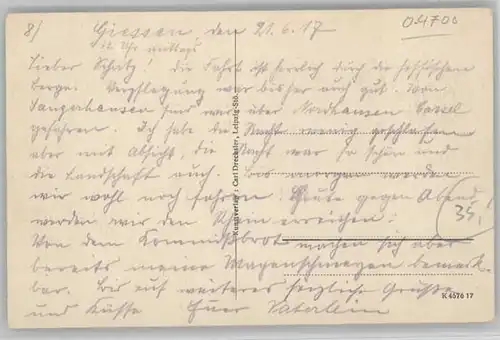 8/ Giessen den 21.6.17
12 Uhr mittags
04700
Lieber Schatz! die Fahrt ist herrlich durch die hessischen
Berge. Verpflegung war bisher auch gut. Von
Sangerhausen sind wir über Nordhausen Cassel
gefahren. Ich habe die Nacht wenig geschlafen
aber mit Absicht, die Nacht war so schön und
die Landschaft auch. Bis morgen werden
wir wohl noch fahren. Heute gegen Abend
werden wir den Rhein erreichen.
34,
Von dem Kommißbrot machen sich aber
bereits meine Magenschmerzen bemerk-
bar. Bis auf weiteres herzliche Grüße
und Küsse Euer Vaterlein
Kunstverlag: Carl Drechsler, Leipzig-Stö.
K 4576 17